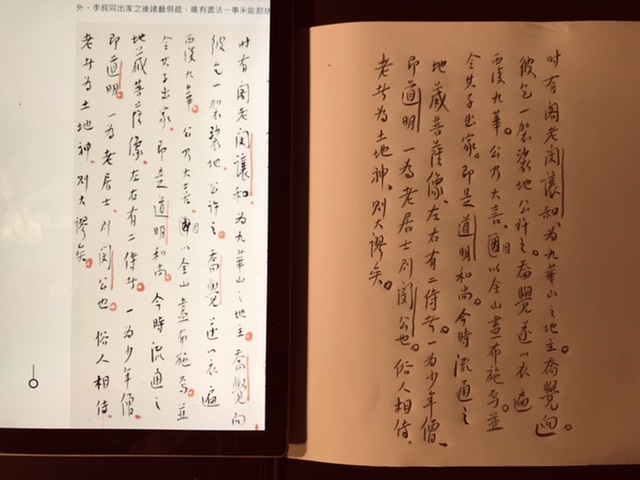 外。李叔同出家之後諸藝俱疏，唯有書法一事未能割
时有阁老閔讓和、为九華山之地主。喬覺向
彼乞一袈裟地。公許之。喬覺遂以衣遍
覆九華。公乃大喜、因以全山盡布施焉。並
令其子出家。即是道明和尚。今時流通之
地藏菩薩像、左右有二侍者。一为少年僧、
即道明。一为老居士、则閔公也。俗人相傳、
老者为土地神。则大謬矣。
时有阁老閔讓和、为九華山之地主。喬覺向
彼乞一袈裟地。公許之。喬覺遂以衣遍
覆九華。公乃大喜、因以全山盡布施焉。並
令其子出家。即是道明和尚。今時流通之
地藏菩薩像、左右有二侍者。一为少年僧、
即道明。一为老居士、则閔公也。俗人相傳、
老者为土地神。则大謬矣。